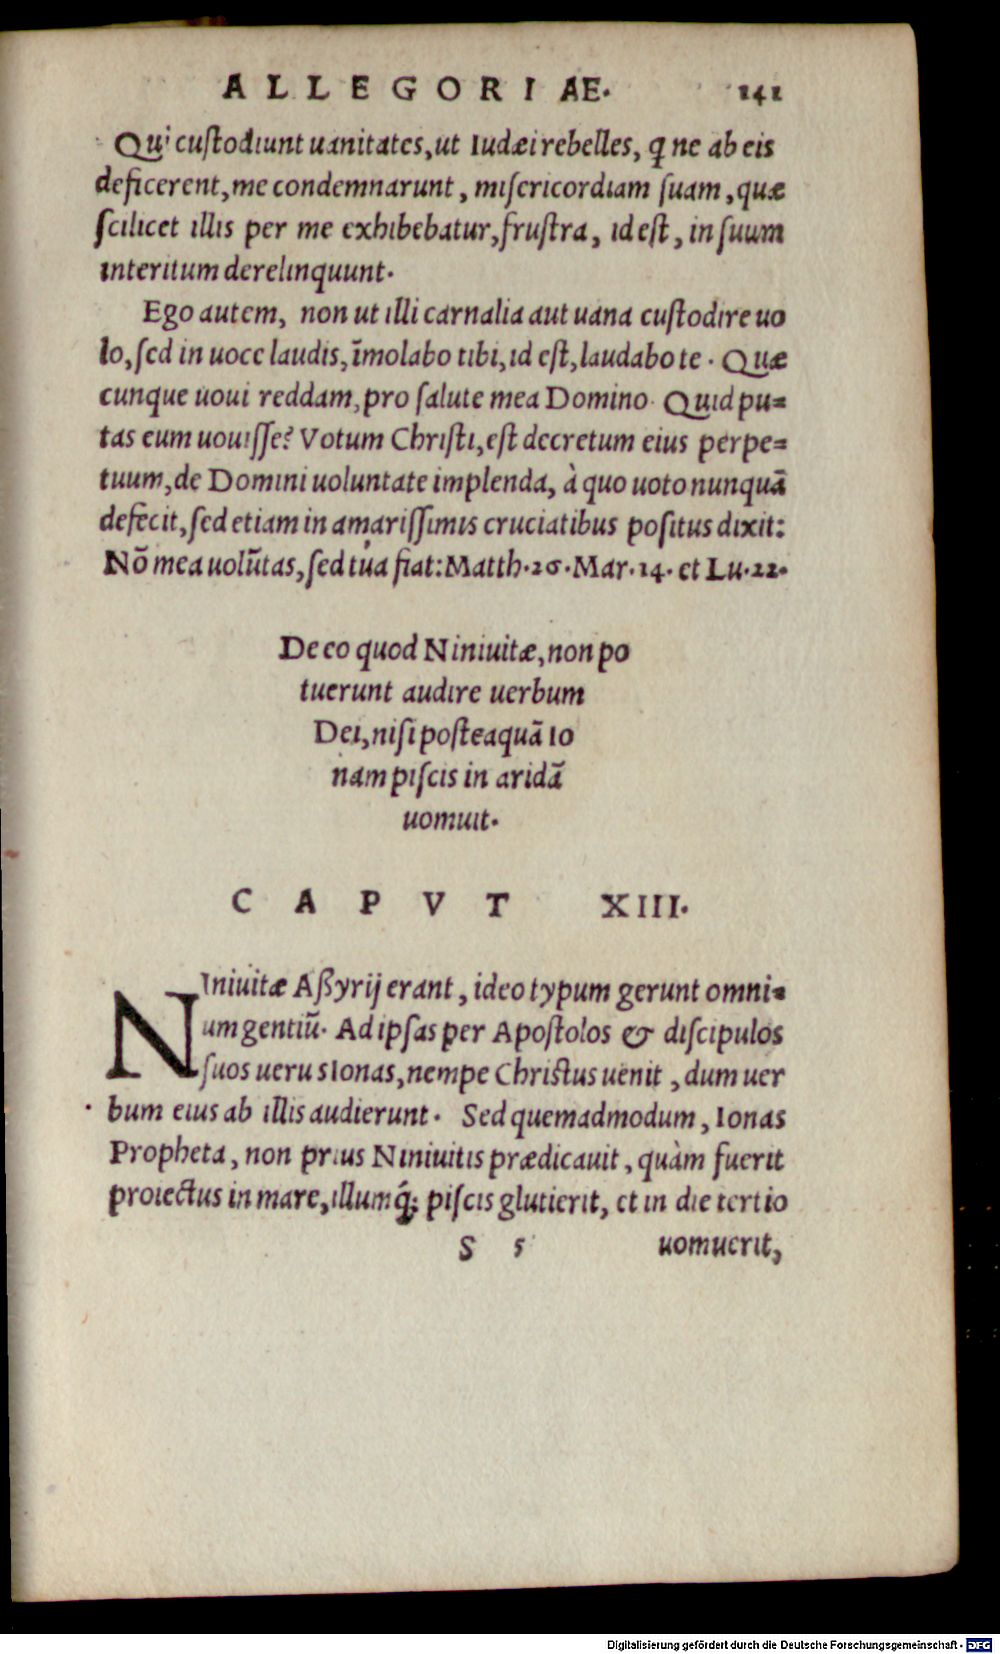 ALLEGORIAE. 141
Qui cuſtodiunt uanitates, ut Iudæi rebelles, ꝗ ne ab eis
deficerent, me condemnarunt, miſericordiam ſuam, quæ
ſcilicet illis per me exhibebatur, fruſtra, id eſt, in ſuum
interitum derelinquunt.
Ego autem, non ut illi carnalia aut uana cuſtodire uo
lo, ſed in uoce laudis, im̄olabo tibi, id eſt, laudabo te. Quæ
cunque uoui reddam, pro ſalute mea Domino. Quid pu=
tas eum uouiſſe? Votum Chriſti, eſt decretum eius perpe=
tuum, de Domini uoluntate implenda, à quo uoto nunquā
defecit, ſed etiam in amariſſimis cruciatibus poſitus dixit:
Nō mea uolūtas, ſed tua fiat: Matth. 26. Mar. 14. et Lu. 22.
De eo quod Niniuitæ, non po
tuerunt audire uerbum
Dei, niſi poſteaquā Io
nam piſcis in aridā
uomuit.
CAPVT XIII.
NIniuitæ Aßyrij erant, ideo typum gerunt omni=
um gentiū. Ad ipſas per Apoſtolos & diſcipulos
ſuos uerus Ionas, nempe Chriſtus uenit, dum uer
bum eius ab illis audierunt. Sed quemadmodum, Ionas
Propheta, non prius Niniuitis prædicauit, quàm fuerit
proiectus in mare, illumq́; piſcis glutierit, et in die tertio
S 5 uomuerit,
Digitalisierung gefördert durch die Deutsche Forschungsgemeinschaft - DFG